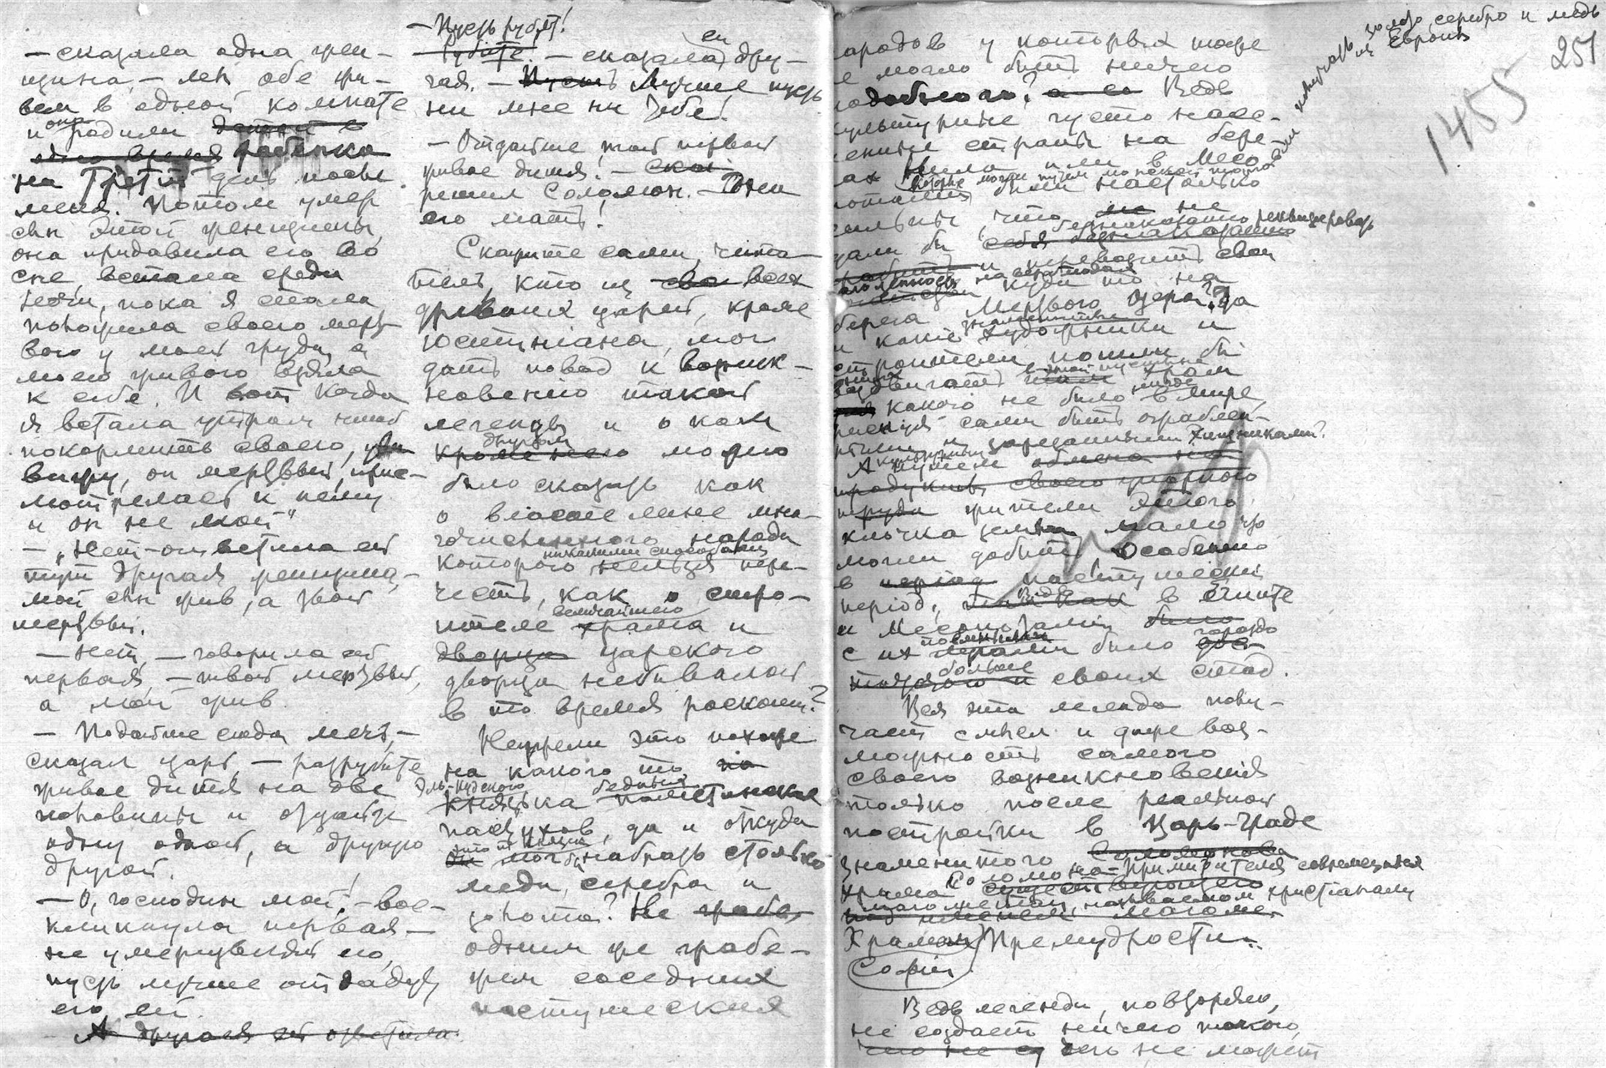 — сказала одна жен-
щина, — мы обе жи-
вем в одной комнате
и она родили детей в
одно время ребенка
на третий день после
меня. Потом умер
сын этой женщины,
она придавила его во
сне, встала среди
ночи, пока я спала
положила своего мерт-
вого у моей груди а
моего живого взяла
к себе. И вот когда
я встала утром чтоб
покормить своего,
вижу, он мертвый, прис-
мотрелась к нему
и он не мой“
— „Нет — ответила ей
тут другая женщина, —
мой сын жив, а твой
мертвый.
— Нет, — говорила ей
первая, — твой мертвый,
а мой жив.
— Подайте сюда меч, —
сказал царь — разрубите
живое дитя на две
половины и отдайте
одну одной, а другую
другой.
— О, господин мой! — вос-
кликнула первая —
не умерщвляй его,
пусть лучше отдадут
его ей.
А другая ей ответила.
— Пусть рубят!
Рубите. — сказала ей дру-
гая. — Пусть Лучше пусть
ни мне ни тебе!
— Отдайте той первой
живое дитя! — Ска
решил Соломон. — Она
его мать!
Скажите сами, чита-
тель, кто из всех
древних царей, кроме
Юстиниана, мог
дать повод к возник-
новению такой
легенды и о ком
кроме него другом можно
было сказать как
о властелине мно-
гочисленного народа
которого никакими способами нельзя пере-
честь, как о стро-
ителе величайшего храма и
дворца царского
дворца небывалой
в то время роскоши?
Неужели это похоже
на какого то
Эль-Кудского
князька бедных палестинских
пастухов, да и откуда
он мог бы набрать столько
меди, серебра и
золота? Не грабе
одним же грабе-
жем соседних
пастушеских
народов у которых тоже
не могло быть ничего
подобного? Ведь
культурные густо насе-
ленные страны на бере-
гах Нила или в Месо-
потамии были настолько
сильны, что не
дали бы безнаказанно реквизировать
себя безнаказанно
и переводить свои
драгоценности
куда то на
берега Мертвого моря? Да
и какие знаменитые художники и
строители пошли бы
воздвигать в этой пустыне храм
какого не было нигде в мире,
рискуя сами быть ограблен-
ными и зарезанными хищниками?
А путем обмена на
продукты своего упорного
труда жители этого
клочка земли мало что
могли добыть Особенно
в период пастушеский
период, в Египте
и Месопотамии было
с их гораздо
больше своих стад.
Вся эта легенда полу-
чает смысл и даже воз-
можность самого
своего возникновения
только после реальной
постройки в Царь-Граде
знаменитого Соломонова
храма Соломона-Примирителя современных
магометан, называемого христианами
Храмом Премудрости.
Софии
Ведь легенды, повторяю,
не создает ничего такого,
чего не может
золото, серебро и медь
из Европы
251
1455